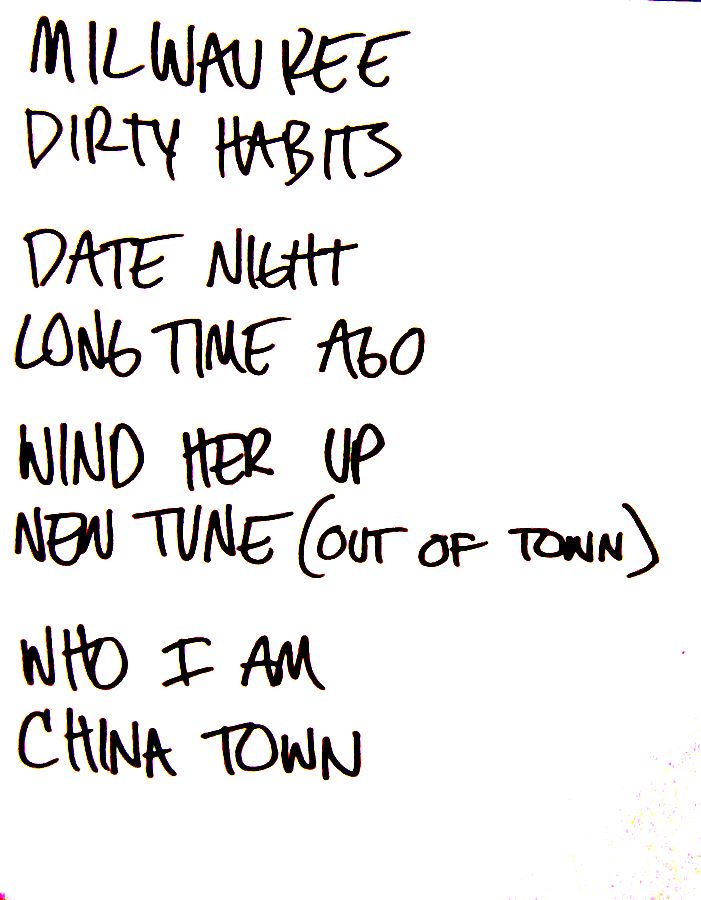 MILWAUKEE
DIRTY HABITS
DATE NIGHT
LONG TIME AGO
WIND HER UP
NEW TUNE (OUT OF TOWN)
WHO I AM
CHINA TOWN